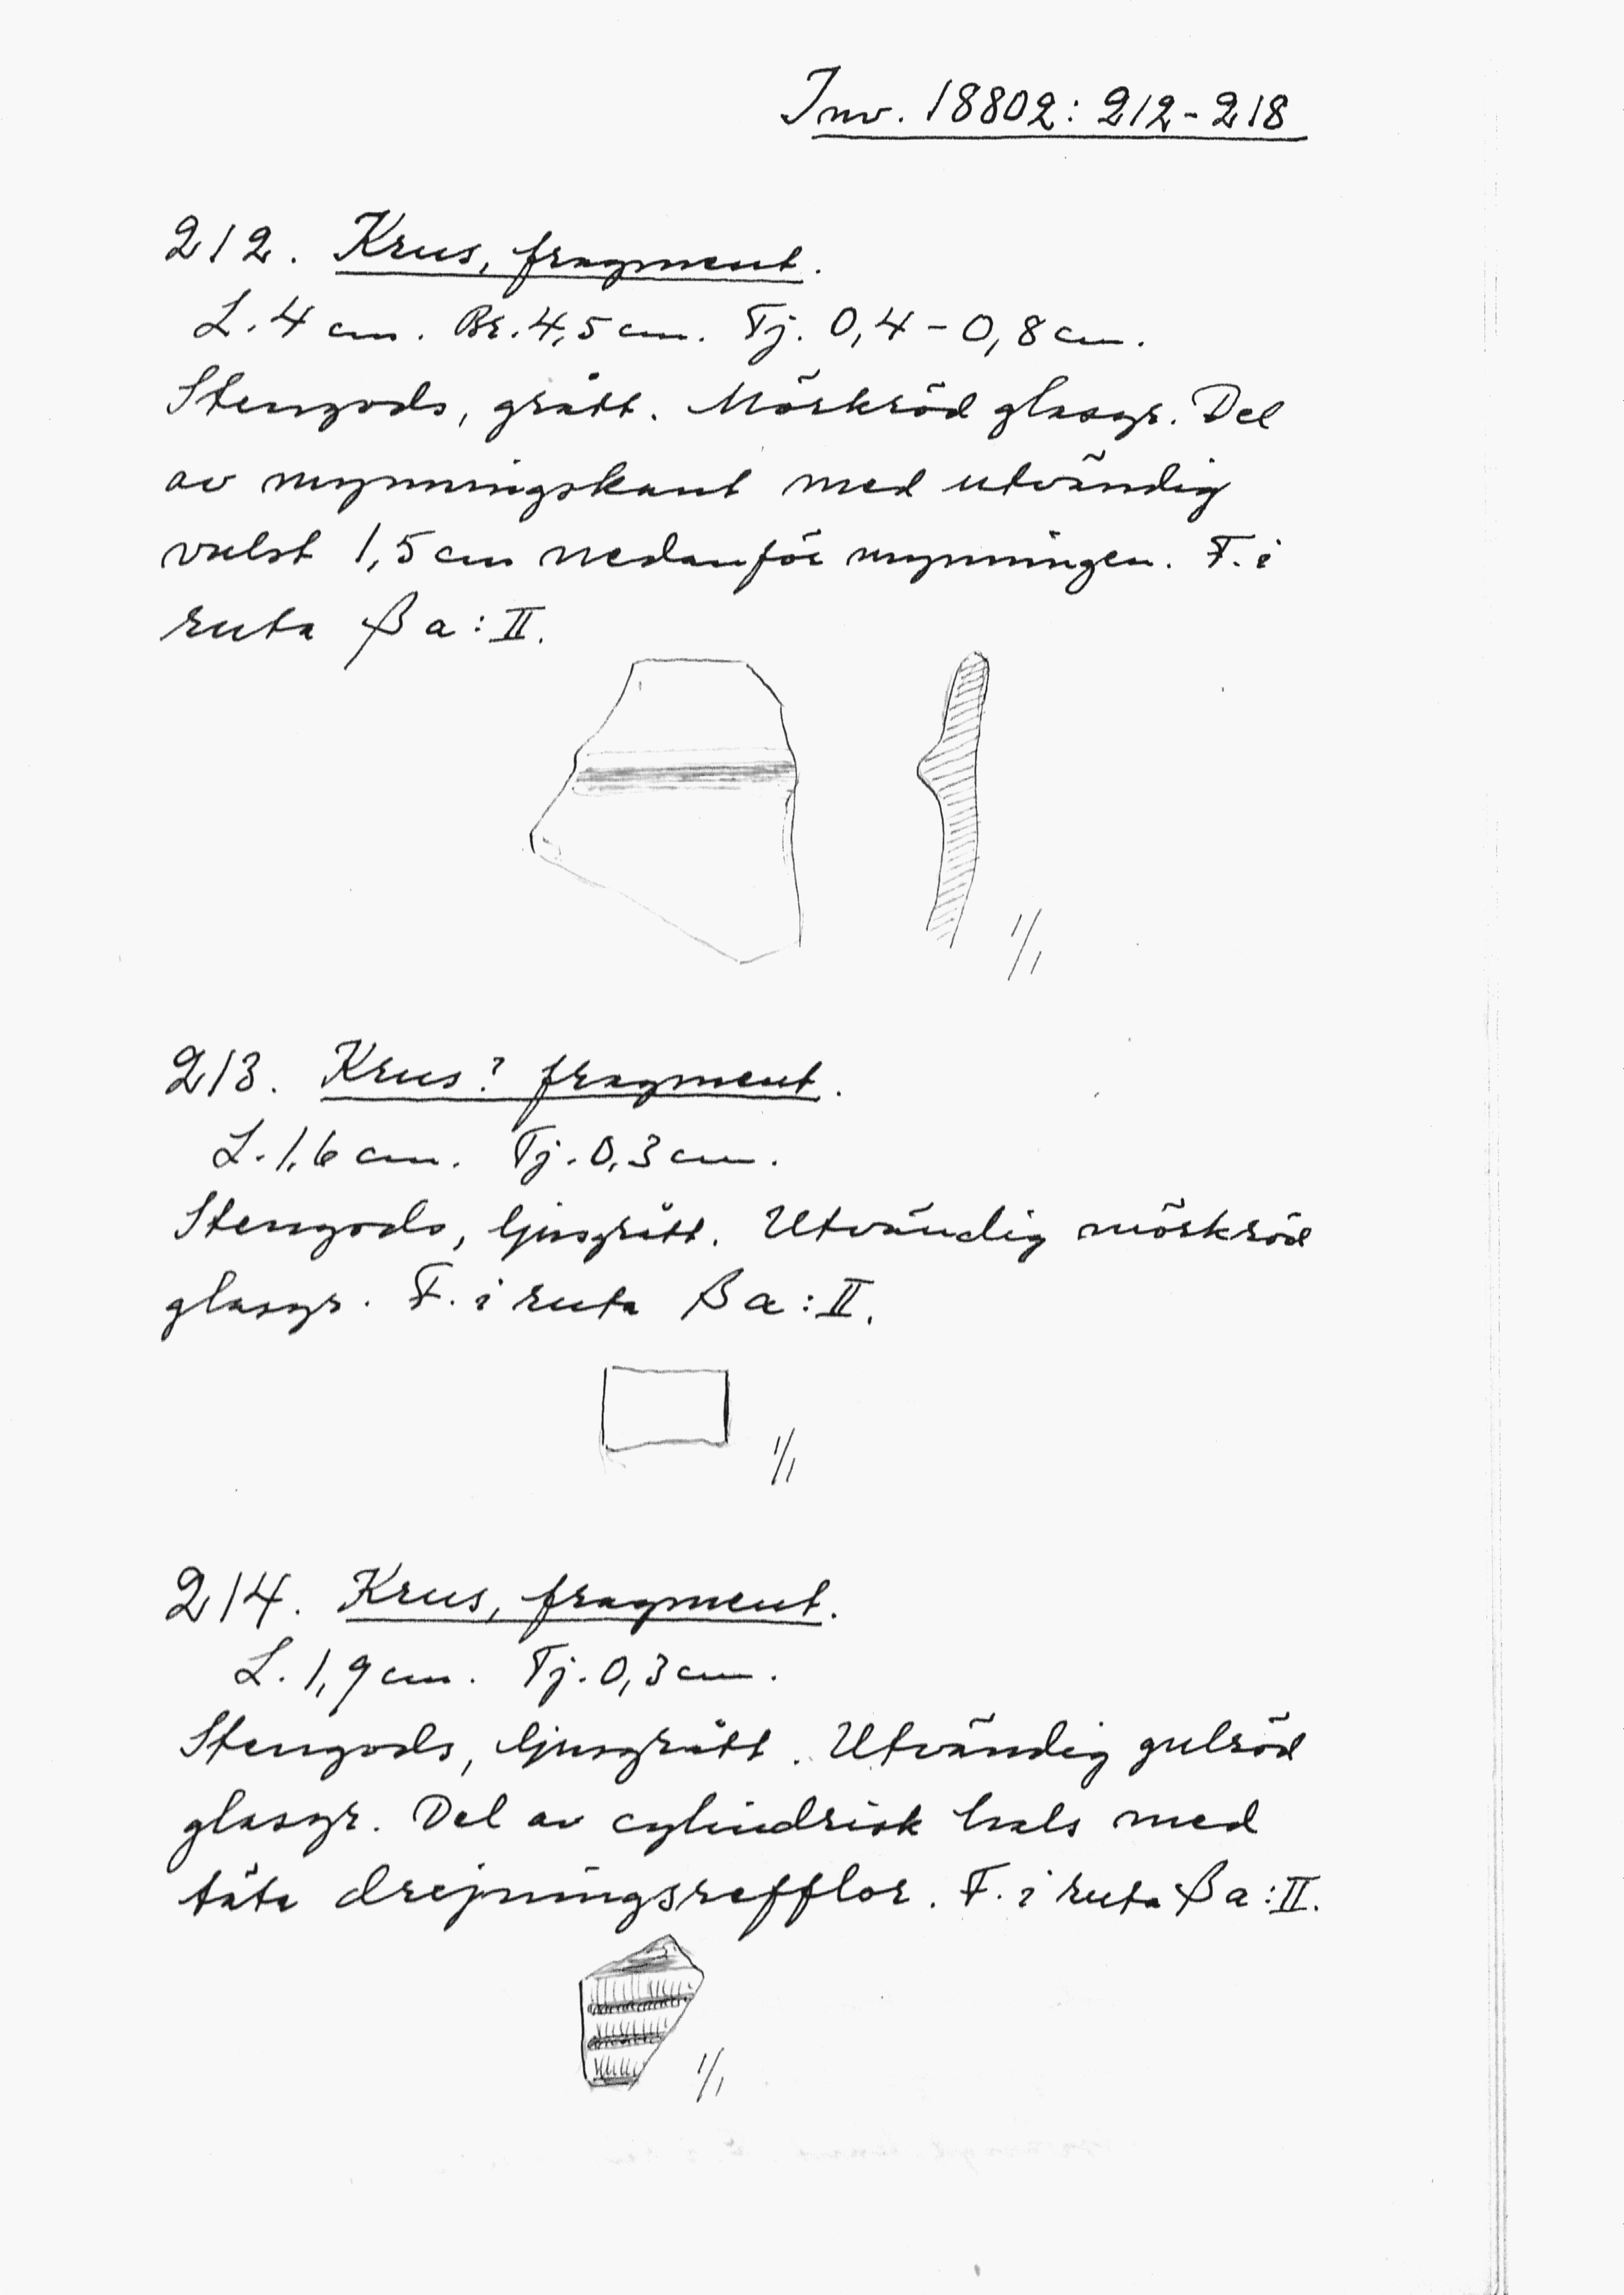 Inv. 18802: 212-218
212. Krus, fragment.
L. 4 cm. Br. 4,5 cm. Tj. 0,4 - 0,8 cm.
Stengods, grått. Mörkröd glasyr. Del
av mynningskant med utvändig
vulst 1,5 cm nedanför mynningen. F. i
ruta β a : II.
1/1
213. Krus? fragment.
L. 1,6 cm. Tj. 0,3 cm.
Stengods, ljusgrått. Utvändig mörkröd
glasyr. F. i ruta β a : II.
1/1
214. Krus, fragment.
L. 1,9 cm. Tj. 0,3 cm.
Stengods, ljusgrått. Utvändig gulröd
glasyr. Del av cylindrisk hals med
täta drejningsrefflor. F. i ruta β a : II.
1/1